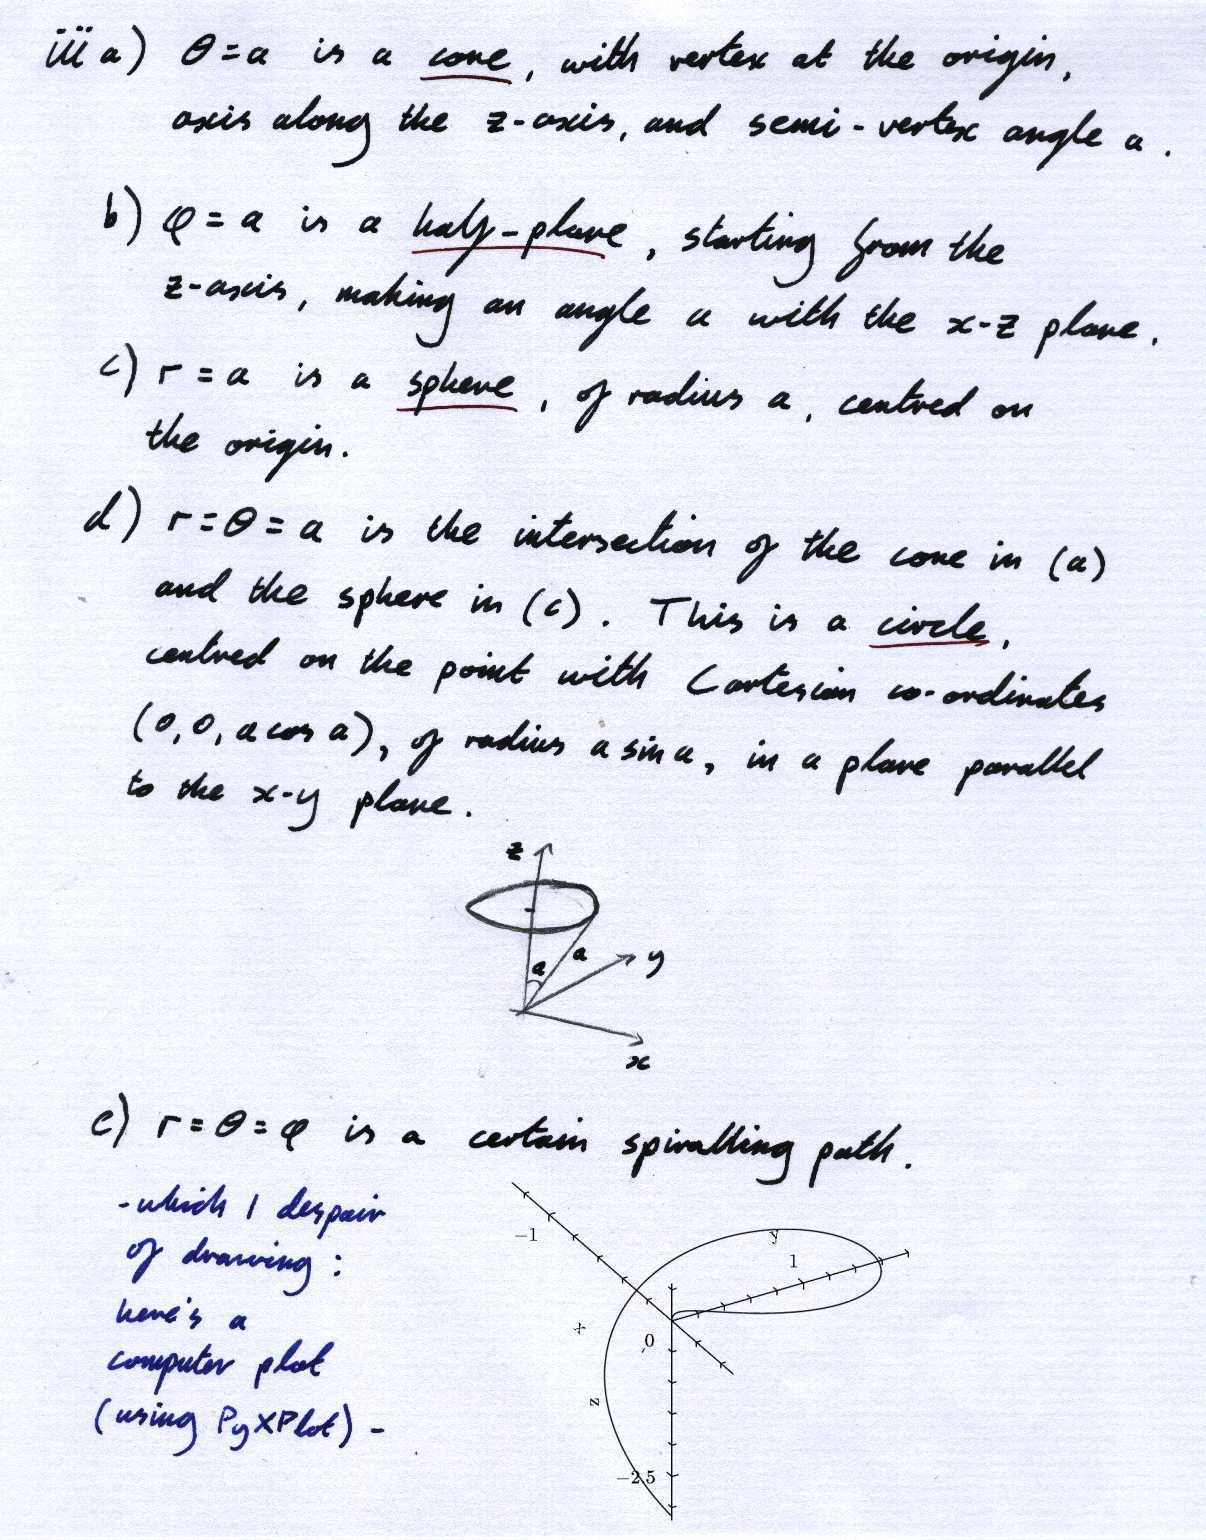 iii a) θ=a is a cone, with vertex at the origin,
axis along the z-axis, and semi-vertex angle a.
b) φ=a is a half-plane, starting from the
z-axis, making an angle a with the x-z plane.
c) r=a is a sphere, of radius a, centred on
the origin.
d) r=θ=a is the intersection of the cone in (a)
and the sphere in (c). This is a circle,
centred on the point with Cartesian co-ordinates
(0,0,a cos a), of radius a sin a, in a plane parallel
to the x-y plane.
z
a
a
y
x
e) r=θ=φ is a certain spiralling path.
-which I despair
of drawing:
here's a
computer plot
(using PyXPlot) -
-1
y
1
x
0
z
-2.5